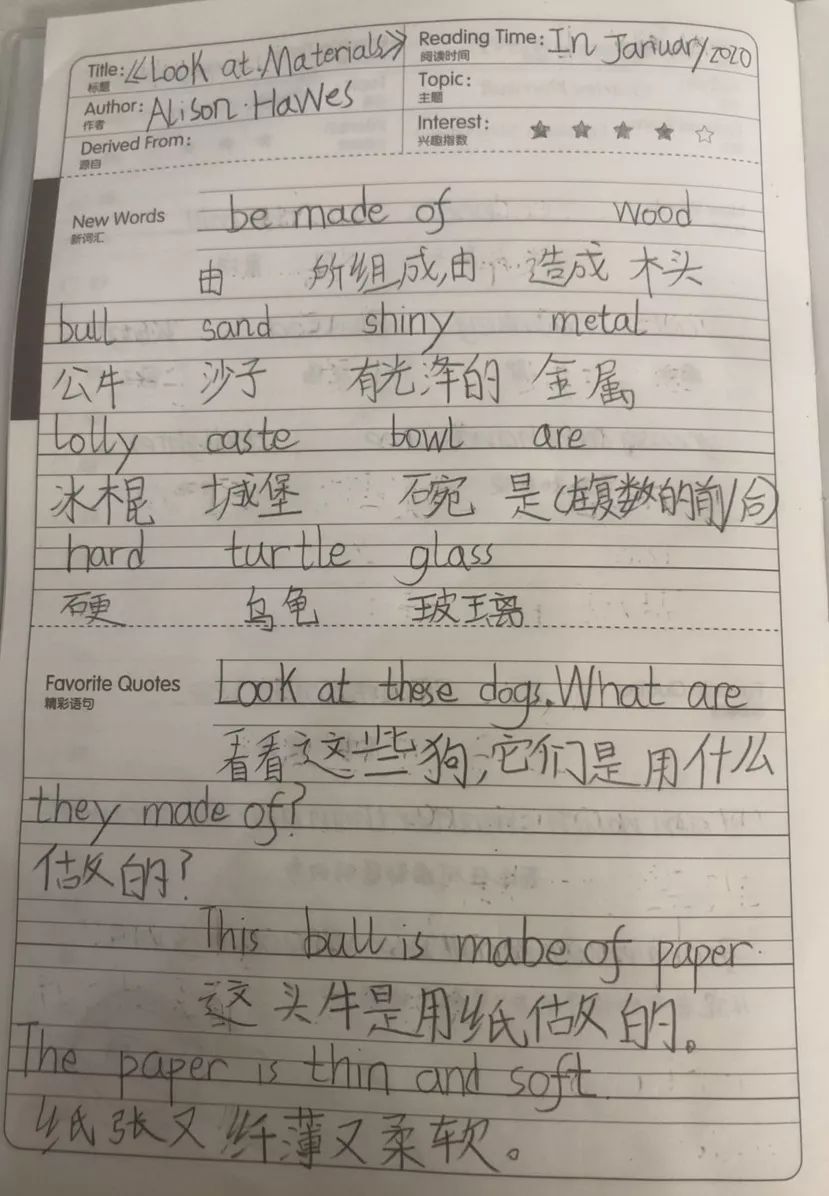 Title: 《Look at Materials》 Reading Time: In January 2020
标题 阅读时间
Author: Alison·Hawes Topic:
作者 主题
Derived From: Interest:
源自 兴趣指数
New Words be made of wood
新词汇
由 所组成,由…造成 木头
bull sand shiny metal
公牛 沙子 有光泽的 金属
lolly caste bowl are
冰棍 城堡 碗 是(在复数的前/后)
hard turtle glass
硬 乌龟 玻璃
Favorite Quotes Look at these dogs.What are
精彩语句
看看这些狗,它们是用什么
they made of?
做的?
This bull is mabe of paper.
这头牛是用纸做的。
The paper is thin and soft
纸张又纤薄又柔软。